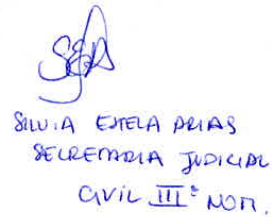 SILVIA ESTELA ARIAS
SECRETARIA JUDICIAL
CIVIL III° NOM.